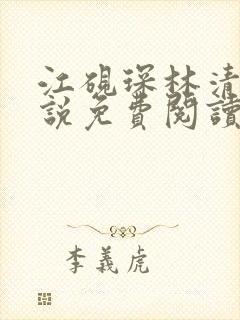 江硯琛林清
說免費閱讀
李義虎